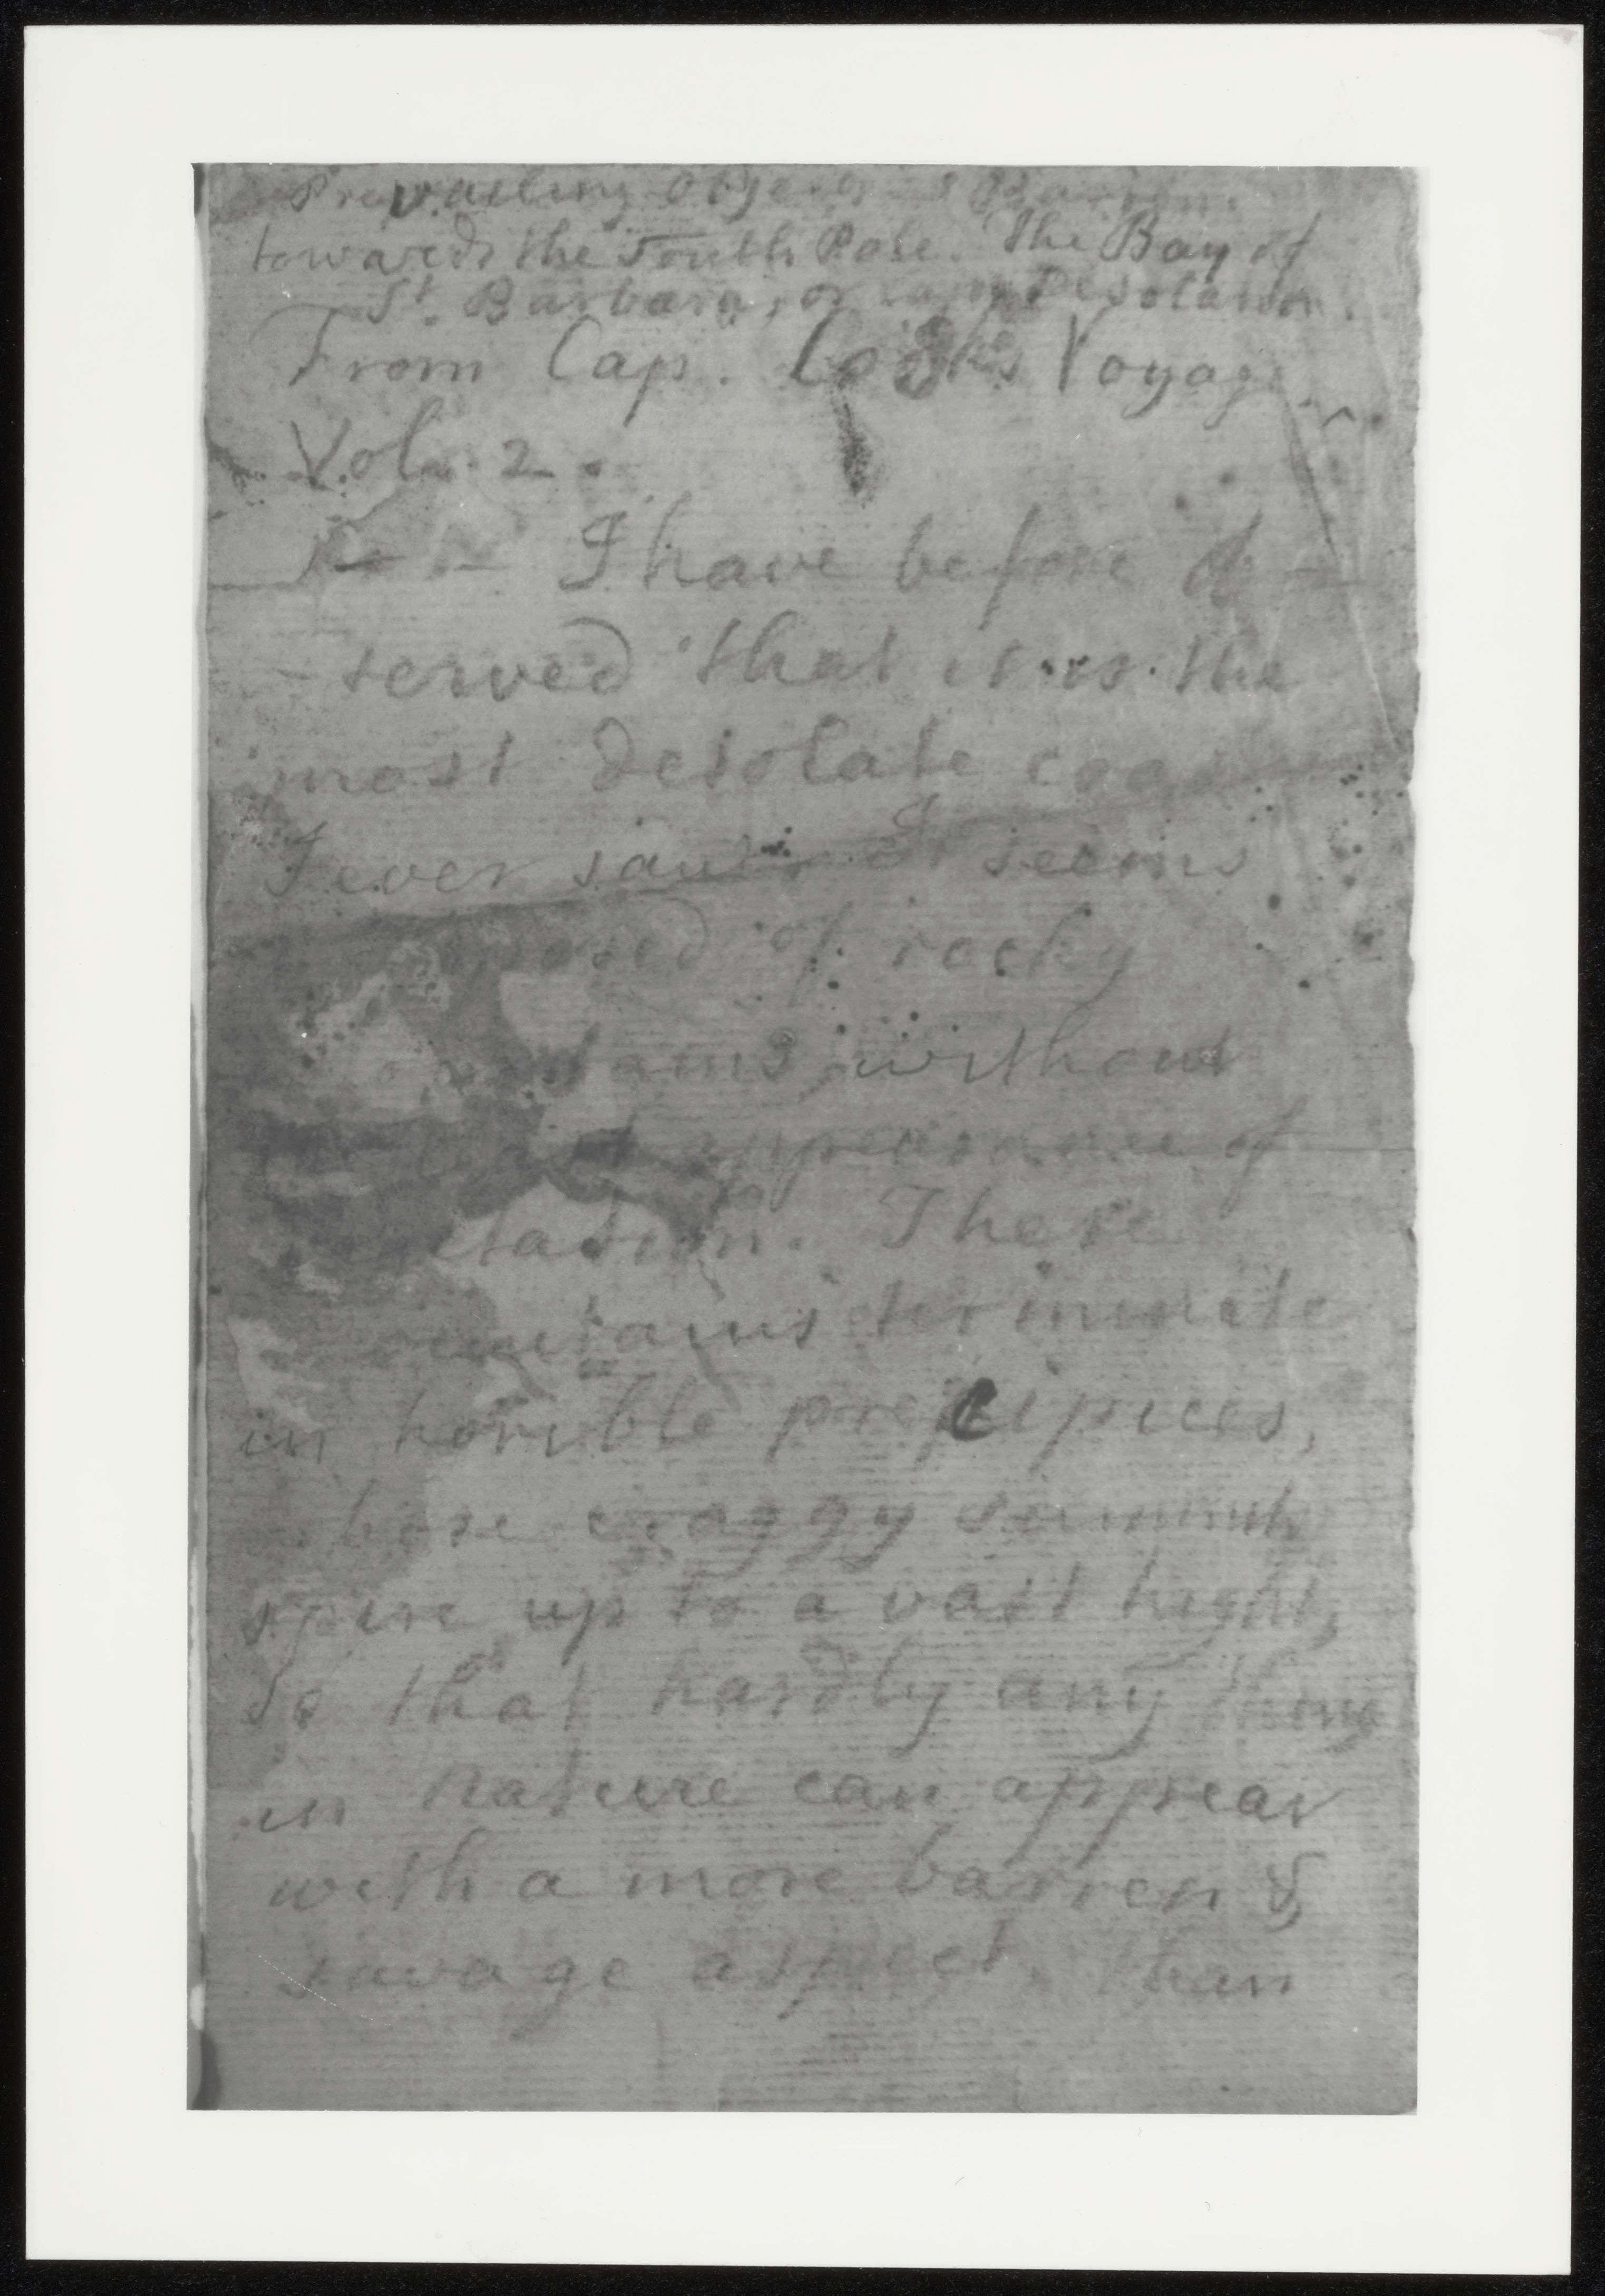 Prevailing Object
towards the South Pole. The Bay of
St. Barbara, or Cape Desolation.
From Cap. Cook's Voyage
Vol. 2.
I have before ob
served that it is the
most desolate coast
I ever saw. It seems
posed of rocky
tains, without
appearance of
etation. These
ountains terminate
in horrible precipices,
hose craggy summits
spire up to a vast hight,
so that hardly any thing
in nature can appear
with a more barren &
savage aspect, than